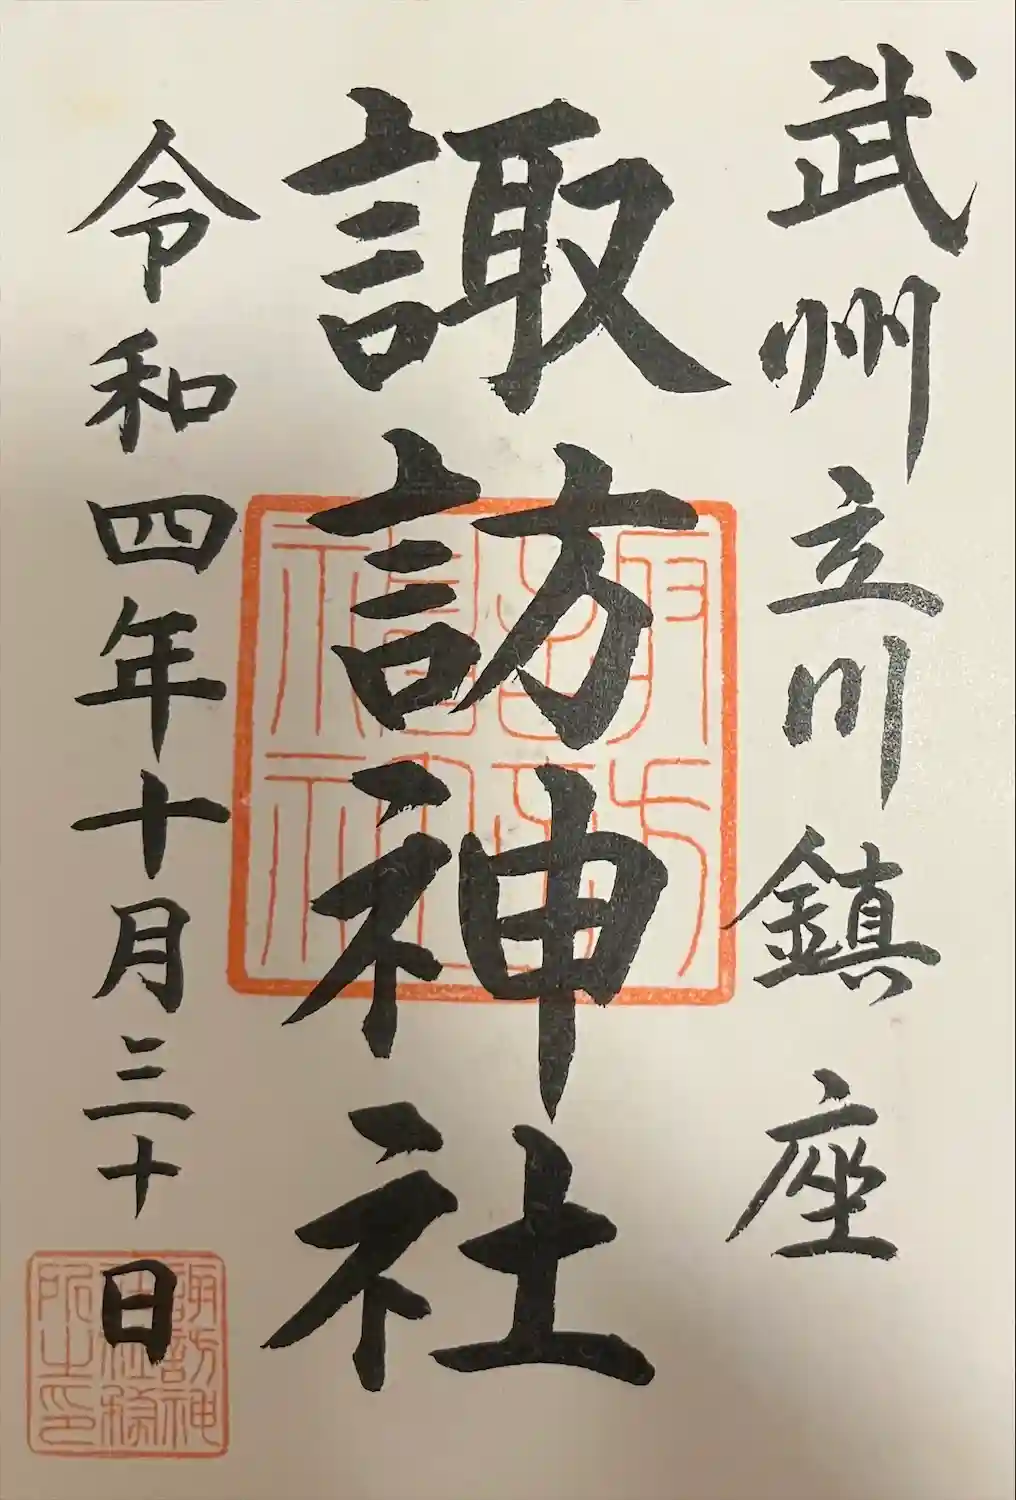 武州立川鎮座
諏訪神社
令和四年十月三十日
諏訪神
社務
所之印